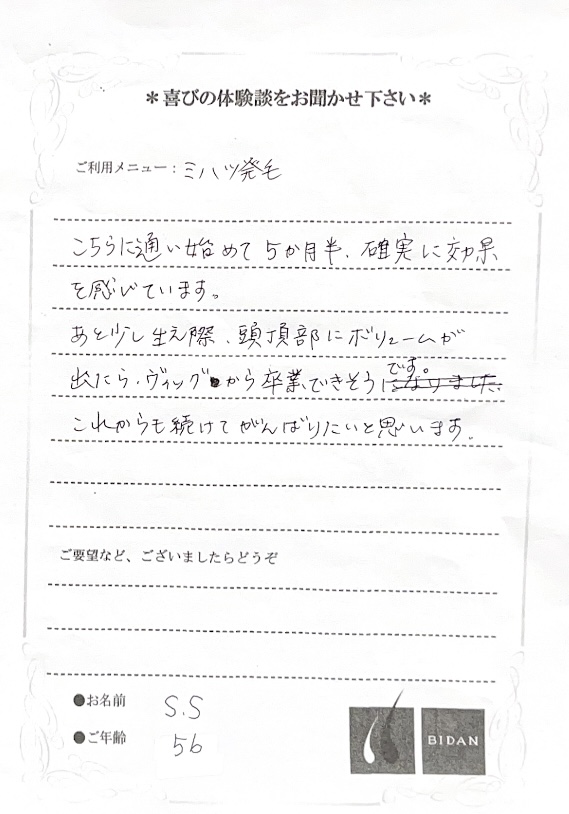 ＊喜びの体験談をお聞かせ下さい＊
ご利用メニュー：ミハツ発毛
こちらに通い始めて5か月半、確実に効果
を感じています。
あと少し生え際、頭頂部にボリュームが
出たら、ヴィッグから卒業できそうです。
これからも続けてがんばりたいと思います。
ご要望など、ございましたらどうぞ
●お名前 S.S
●ご年齢 56
BIDAN